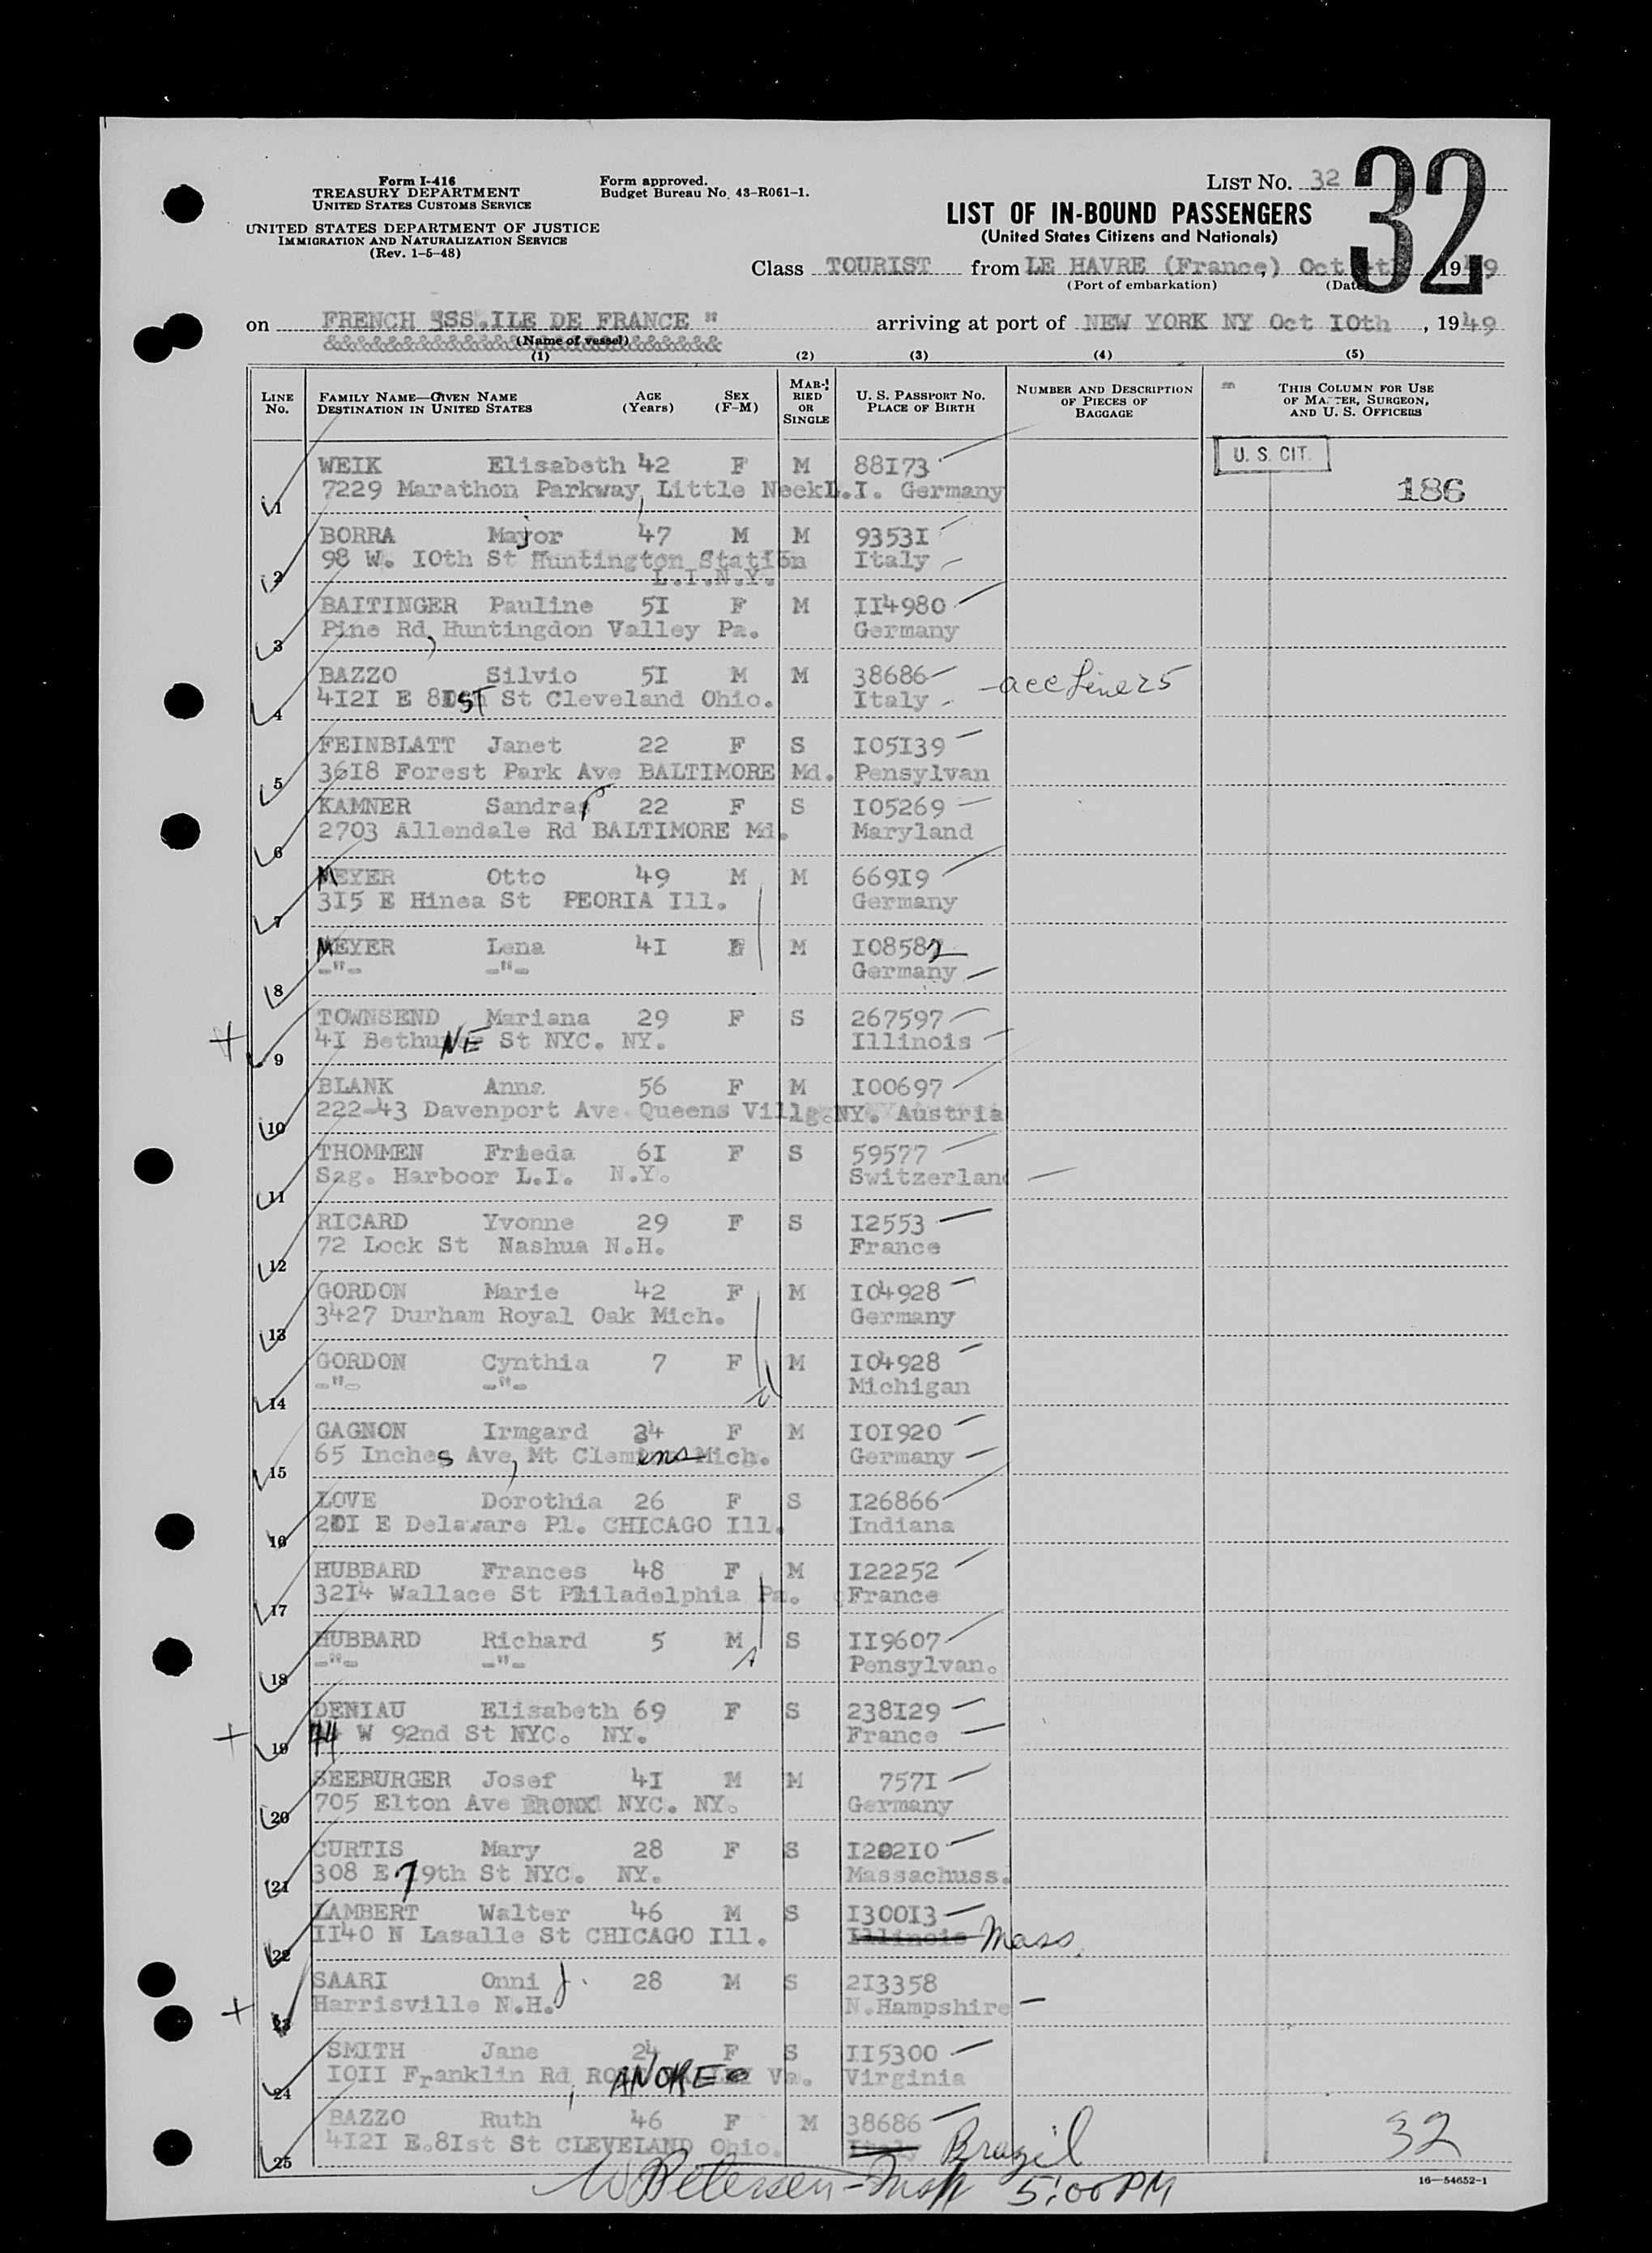 Form I-416
TREASURY DEPARTMENT
UNITED STATES CUSTOMS SERVICE
UNITED STATES DEPARTMENT OF JUSTICE
IMMIGRATION AND NATURALIZATION SERVICE
(Rev. 1-5-48)
Form approved.
Budget Bureau No. 43-R061-1.
LIST NO. 32
32
LIST OF IN-BOUND PASSENGERS
(United States Citizens and Nationals)
Class TOURIST from LE HAVRE (France,) Oct 1949
(Port of embarkation) (Date
on FRENCH SS.ILE DE FRANCE " arriving at port of NEW YORK NY Oct IOth , 1949
(Name of vessel)
(1) (2) (3) (4) (5)
LINE No. FAMILY NAME—GIVEN NAME DESTINATION IN UNITED STATES AGE (Years) SEX (F-M) MARRIED OR SINGLE U. S. PASSPORT NO. PLACE OF BIRTH NUMBER AND DESCRIPTION OF PIECES OF BAGGAGE THIS COLUMN FOR USE OF MASTER, SURGEON, AND U. S. OFFICERS
U. S. CIT.
186
WEIK Elisabeth 42 F M 88I73
1 7229 Marathon Parkway, Little Neck L.I. Germany
BORRA Major 47 M M 9353I
2 98 W. IOth St Huntington Station Italy
L.I.N.Y.
BAITINGER Pauline 5I F M II4980
3 Pine Rd, Huntingdon Valley Pa. Germany
BAZZO Silvio 5I M M 38686 - acc Line 25
4 4I2I E 8IST St Cleveland Ohio. Italy
FEINBLATT Janet 22 F S I05I39
5 36I8 Forest Park Ave BALTIMORE Md. Pensylvan
KAMNER Sandra 22 F S I05269
6 2703 Allendale Rd BALTIMORE Md. Maryland
MEYER Otto 49 M M 669I9
7 3I5 E Hinea St PEORIA Ill. Germany
MEYER Lena 4I F M I08582
8 -"- -"- Germany
TOWNSEND Mariana 29 F S 267597
9 4I BethuNE St NYC. NY. Illinois
BLANK Anna 56 F M I00697
10 222-43 Davenport Ave Queens Villge NY. Austria
THOMMEN Frieda 6I F S 59577
11 Sag. Harboor L.I. N.Y. Switzerland
RICARD Yvonne 29 F S I2553
12 72 Lock St Nashua N.H. France
GORDON Marie 42 F M I04928
13 3427 Durham Royal Oak Mich. Germany
GORDON Cynthia 7 F M I04928
14 -"- -"- Michigan
GAGNON Irmgard 34 F M IOI920
15 65 Inches Ave, Mt Clemens Mich. Germany
LOVE Dorothia 26 F S I26866
16 20I E Delaware Pl. CHICAGO Ill. Indiana
HUBBARD Frances 48 F M I22252
17 32I4 Wallace St Philadelphia Pa. France
HUBBARD Richard 5 M S II9607
18 -"- -"- Pensylvan.
DENIAU Elisabeth 69 F S 238I29
19 44 W 92nd St NYC. NY. France
SEEBURGER Josef 4I M M 757I
20 705 Elton Ave BRONX NYC. NY. Germany
CURTIS Mary 28 F S I202IO
21 308 E 79th St NYC. NY. Massachuss.
LAMBERT Walter 46 M S I300I3
22 II40 N Lasalle St CHICAGO Ill. Illinois Mass.
SAARI Onni J. 28 M S 2I3358
23 Harrisville N.H. N.Hampshire
SMITH Jane 24 F S II5300
24 IOII Franklin Rd, ROANOKE Va. Virginia
BAZZO Ruth 46 F M 38686
25 4I2I E.8Ist St CLEVELAND Ohio. Italy Brazil
32
W Petersen - Insp 5:00 PM
16—54652-1